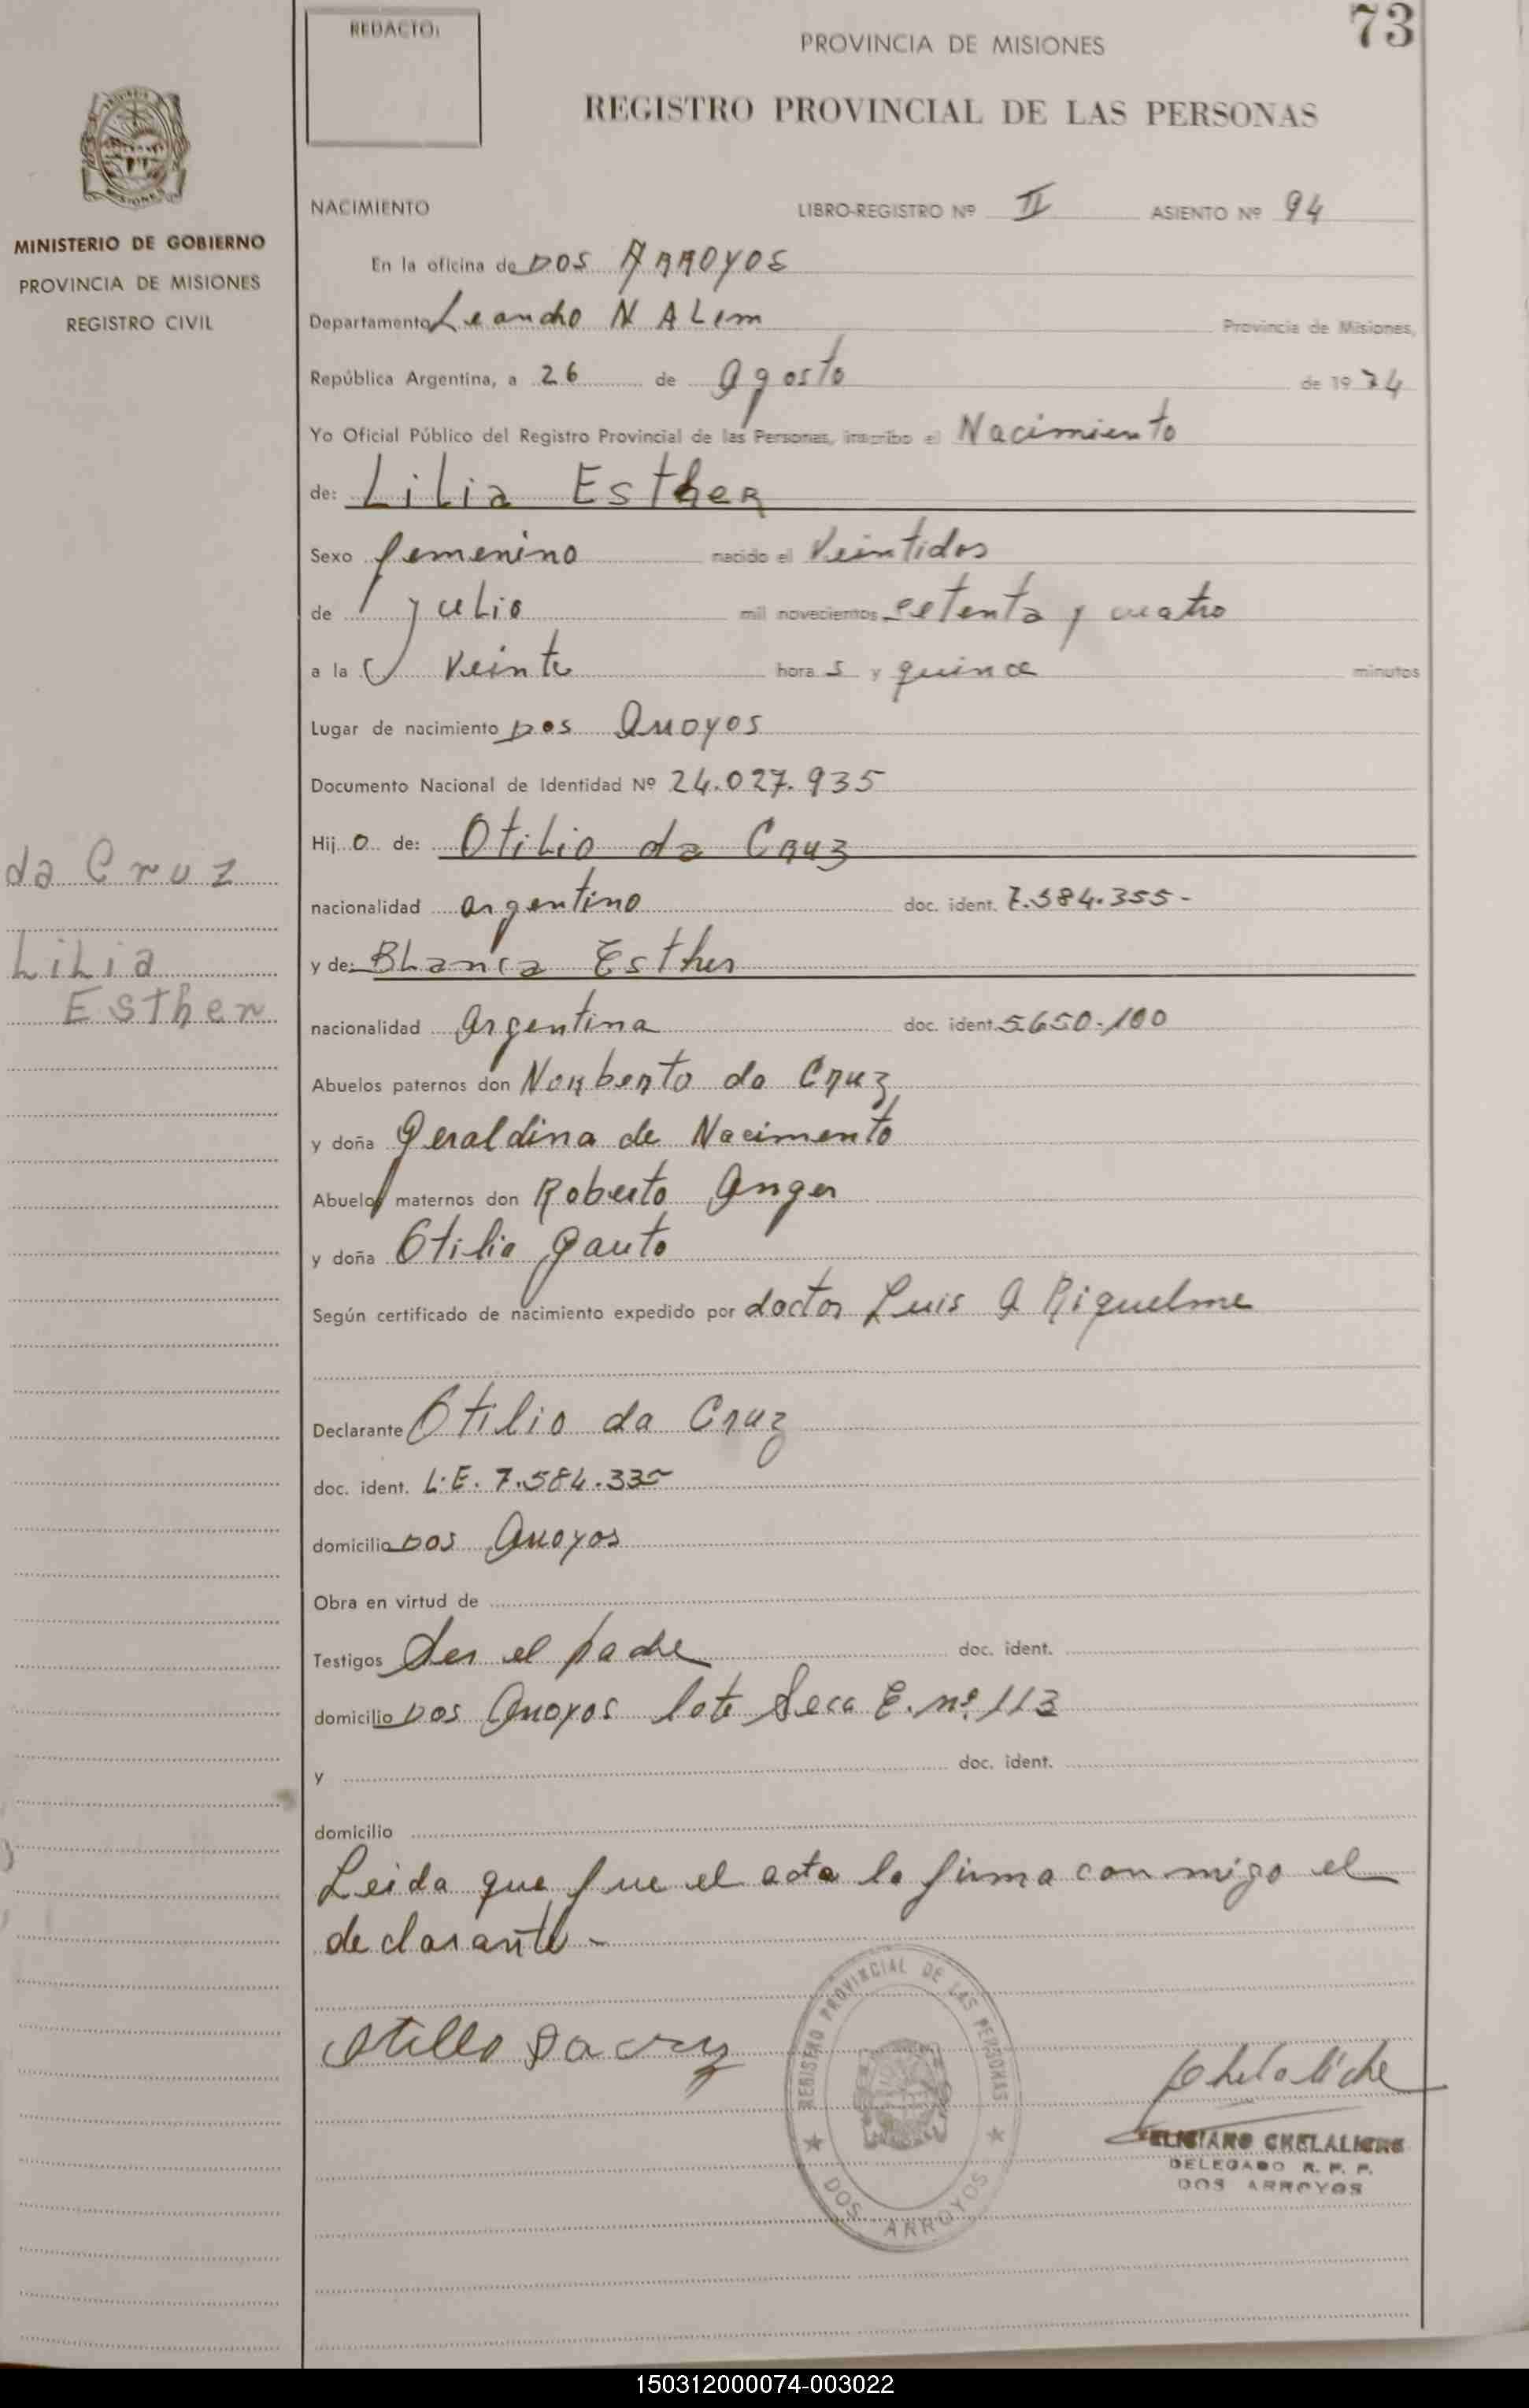 73
REDACTO:
PROVINCIA DE MISIONES
REGISTRO PROVINCIAL DE LAS PERSONAS
MINISTERIO DE GOBIERNO
PROVINCIA DE MISIONES
REGISTRO CIVIL
da Cruz
Lilia
Esther
NACIMIENTO LIBRO-REGISTRO Nº II ASIENTO Nº 94
En la oficina de DOS ARROYOS
Departamento Leandro N ALem Provincia de Misiones,
República Argentina, a 26 de agosto de 1974
Yo Oficial Público del Registro Provincial de las Personas, inscribo el Nacimiento
de: Lilia Esther
Sexo femenino nacido el Veintidos
de julio mil novecientos setenta y cuatro
a la s veinte hora s y quince minutos
Lugar de nacimiento Dos Arroyos
Documento Nacional de Identidad Nº 24.027.935
Hij o de: Otilio da Cruz
nacionalidad argentino doc. ident. 7.584.355-
y de: Blanca Esther
nacionalidad argentina doc. ident. 5.650.100
Abuelos paternos don Norberto da Cruz
y doña Geraldina de Nacimento
Abuelos maternos don Roberto Anger
y doña Otilia Gauto
Según certificado de nacimiento expedido por doctor Luis A Riquelme
Declarante Otilio da Cruz
doc. ident. L.E. 7.584.335
domicilio Dos Arroyos
Obra en virtud de
Testigos Ser el padre doc. ident.
domicilio Dos Arroyos lote Secc E. nº 113
y doc. ident.
domicilio
Leida que fue el acta la firma con migo el
declarante-
Otilio Da cruz
REGISTRO PROVINCIAL DE LAS PERSONAS
DOS ARROYOS
Chelaliche
FELICIANO CHELALICHE
DELEGADO R. P. P.
DOS ARROYOS
150312000074-003022